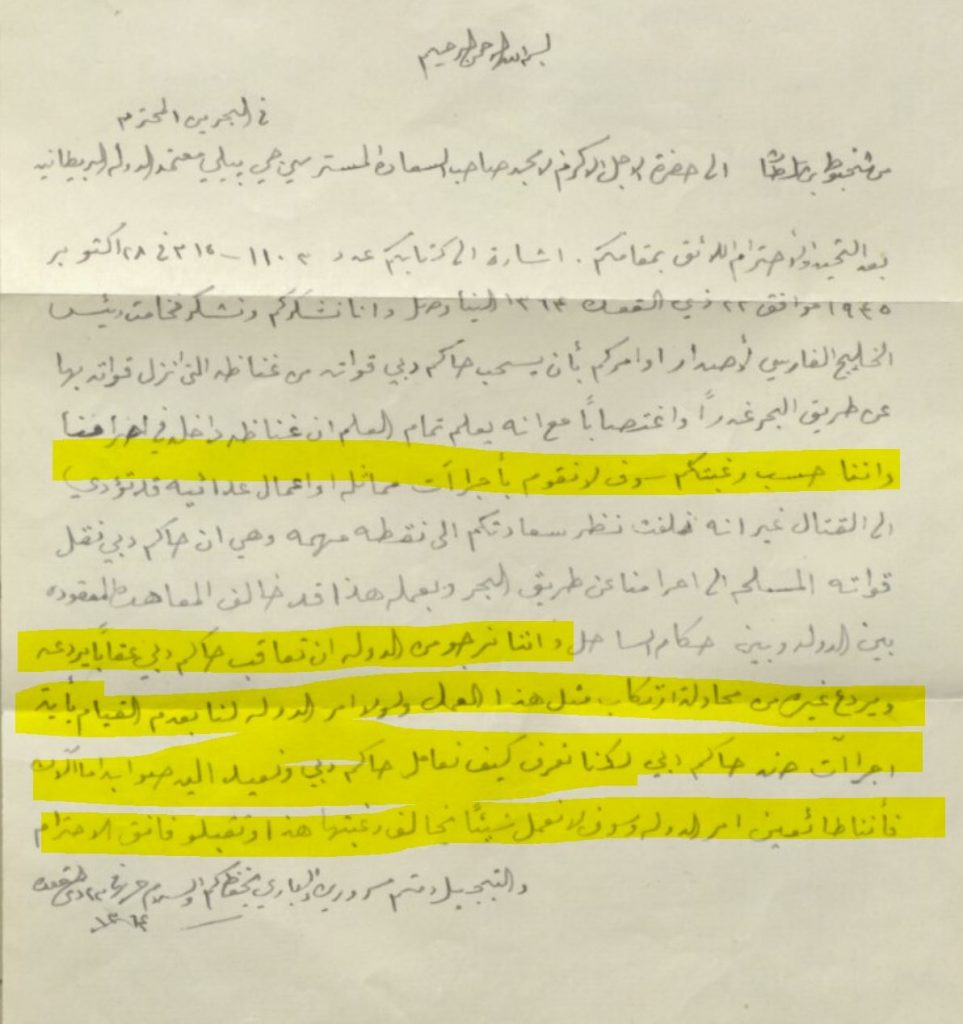 بسم الله الرحمن الرحيم
في البحرين المحترم
من شخبوط بن سلطان الى حضرة الاجل الاكرم الامجد صاحب السعادة المستر سي جي بيلي معتمد الدوله البريطانيه
بعد التحيه والأحترام اللائق بمقامكم . اشارة الى كتابكم عدد في ٢٨ اكتوبر
١٩٤٥ موافق ٢٢ ذي القعده ١٣٦٤ الينا وصل وانا نشكركم ونشكر فخامة رئيس
الخليج الفارسي لأصدار اوامركم بأن يسحب حاكم دبي قواته من غناظه التى انزل قواته بها
عن طريق البحر غدراً واغتصاباً مع انه يعلم تمام العلم ان غناظه داخله في احرامنا
واننا حسب رغبتكم سوف لا نقوم بأجراآت مماثله او اعمال عدائيه قد تؤدي
الى القتال غير انه نلفت نظر سعادتكم الى نقطه مهمه وهي ان حاكم دبي نقل
قواته المسلحه الى احرامنا عن طريق البحر وبعمله هذا قد خالف المعاهده المعقوده
بين الدوله وبين حكام الساحل واننا نرجو من الدوله ان تعاقب حاكم دبي عقاباً يردعه
ويردع غيره من محاولة ارتكاب مثل هذا العمل ولولا امر الدوله لنا بعدم القيام بأية
اجراآت ضد حاكم دبي لكنا نعرف كيف نعامل حاكم دبي ونعيد اليه صوابه اما الآن
فأننا طائعين امر الدوله وسوف لا نعمل شيئاً يخالف رغبتها هذا وتقبلو فائق الاحترام
والتبجيل ودمتم مسرورين والباري يحفظكم والسلام حرر في ذي القعده
١٣٦٤